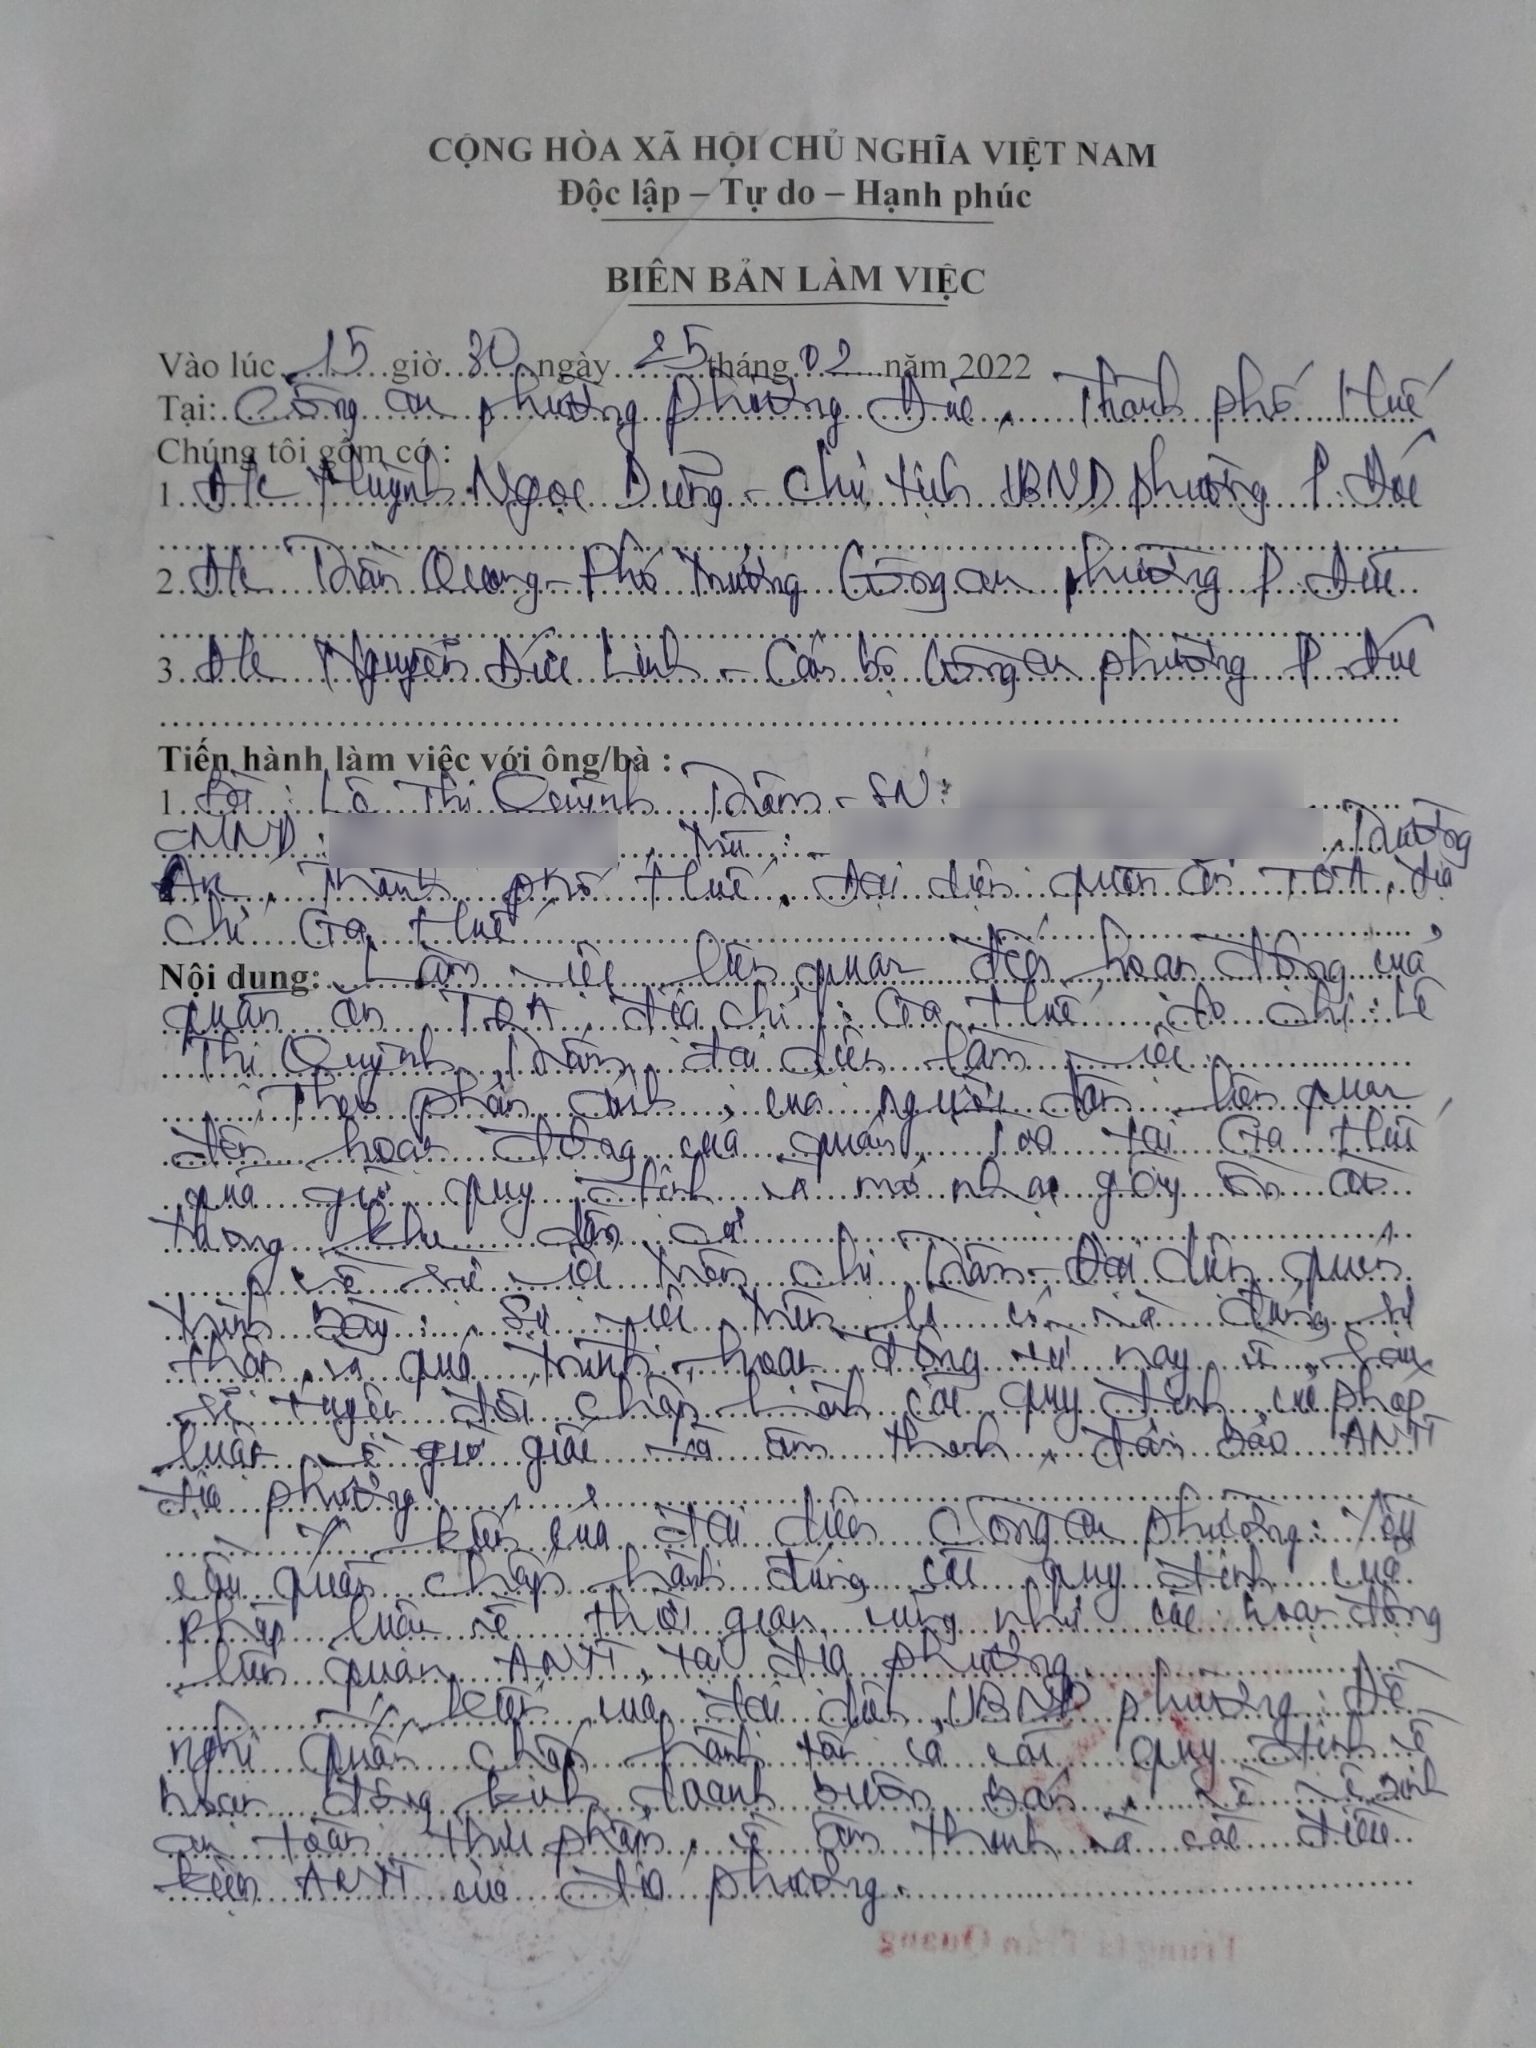 CỘNG HÒA XÃ HỘI CHỦ NGHĨA VIỆT NAM
Độc lập – Tự do – Hạnh phúc
BIÊN BẢN LÀM VIỆC
Vào lúc 15 giờ 30 ngày 25 tháng 02 năm 2022
Tại: Công an phường Phường Đúc, Thành phố Huế
Chúng tôi gồm có :
1. Đ/c Huỳnh Ngọc Dũng - Chủ tịch UBND phường P. Đúc
2. Đ/c Trần Quang - Phó trưởng Công an phường P. Đúc
3. Đ/c Nguyễn Đức Linh - Cán bộ Công an phường P. Đúc
Tiến hành làm việc với ông/bà :
1. Lê Thị Quỳnh Trâm - SN:
CMND: , Trú : , Trường
An, Thành phố Huế, Đại diện quán ăn TOA, địa
chỉ Ga Huế
Nội dung: Làm việc liên quan đến hoạt động của
quán ăn TOA, địa chỉ : Ga Huế do chị : Lê
Thị Quỳnh Trâm đại diện làm việc.
Theo phản ánh của người dân liên quan
đến hoạt động của quán Toa tại Ga Huế
quá giờ quy định và mở nhạc gây ồn ào
trong khu dân cư
Về sự việc trên chị Trâm - Đại diện quán
trình bày : Sự việc trên là có và đúng sự
thật, và quá trình hoạt động từ nay về sau
sẽ tuyệt đối chấp hành các quy định của pháp
luật về giờ giấc và âm thanh, đảm bảo ANTT
địa phương
Ý kiến của đại diện Công an phường: Yêu
cầu quán chấp hành đúng các quy định của
pháp luật về thời gian cũng như các hoạt động
liên quan ANTT tại địa phương
Ý kiến của đại diện UBND phường : Đề
nghị quán chấp hành tất cả các quy định về
hoạt động kinh doanh buôn bán, về vệ sinh
an toàn thực phẩm, về âm thanh và các điều
kiện ANTT của địa phương.
Trung tá Trần Quang